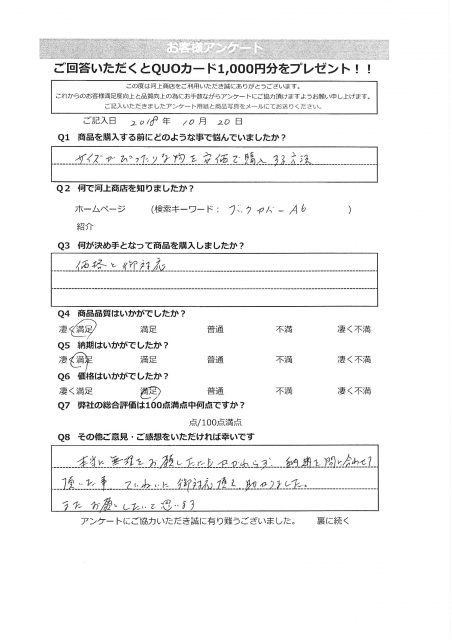 お客様アンケート
ご回答いただくとQUOカード1,000円分をプレゼント！！
この度は河上商店をご利用いただき誠にありがとうございます。
これからのお客様満足度向上と品質向上の為にお手数ながらアンケートにご協力頂けますようお願い申し上げます。
ご記入いただきましたアンケート用紙と商品写真をメールにてお送りください。
ご記入日 2018 年 10 月 20 日
Q1 商品を購入する前にどのような事で悩んでいましたか？
サイズがぴったりな物を安価で購入する方法
Q2 何で河上商店を知りましたか？
ホームページ （検索キーワード： ブックカバーA6 ）
紹介
Q3 何が決め手となって商品を購入しましたか？
価格と御対応
Q4 商品品質はいかがでしたか？
凄く満足 満足 普通 不満 凄く不満
Q5 納期はいかがでしたか？
凄く満足 満足 普通 不満 凄く不満
Q6 価格はいかがでしたか？
凄く満足 満足 普通 不満 凄く不満
Q7 弊社の総合評価は100点満点中何点ですか？
点/100点満点
Q8 その他ご意見・ご感想をいただければ幸いです
本当に無理をお願いしたにもかかわらず 納期を問い合わせて
頂いた事 ていねいに御対応頂き助かりました。
またお願いしたいと思います
アンケートにご協力いただき誠に有り難うございました。 裏に続く